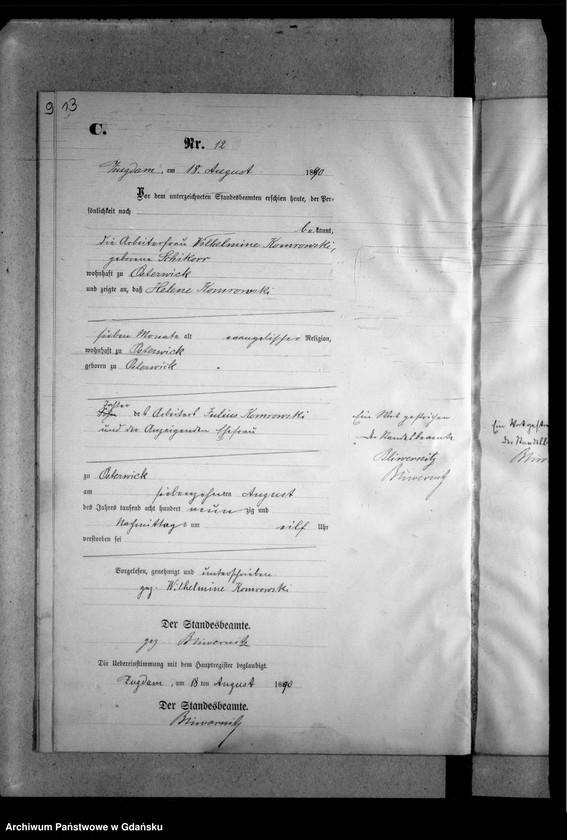 9 13
C.
Nr. 12
Zugdam, am 18. August 1890
Vor dem unterzeichneten Standesbeamten erschien heute, der Per-
sönlichkeit nach
bekannt,
die Arbeiterfrau Wilhelmine Komrowski,
geborene Schikorr
wohnhaft zu Osterwick
und zeigte an, daß Helene Komrowski
sieben Monate alt evangelischer Religion,
wohnhaft zu Osterwick
geboren zu Osterwick
Tochter
Sohn des Arbeiters Julius Komrowski
und der Anzeigenden Ehefrau
zu Osterwick
am siebenzehnten August
des Jahres tausend acht hundert neunzig und
Nachmittags um eilf Uhr
verstorben sei
Vorgelesen, genehmigt und unterschrieben
gez. Wilhelmine Komrowski
Der Standesbeamte.
gez
Die Uebereinstimmung mit dem Hauptregister beglaubigt.
Zugdam, am 18 ten August 1890
Der Standesbeamte.
Ein Wort gestrichen
Der Standesbeamte
Ein Wort gestr
der Standesb
Archiwum Państwowe w Gdańsku